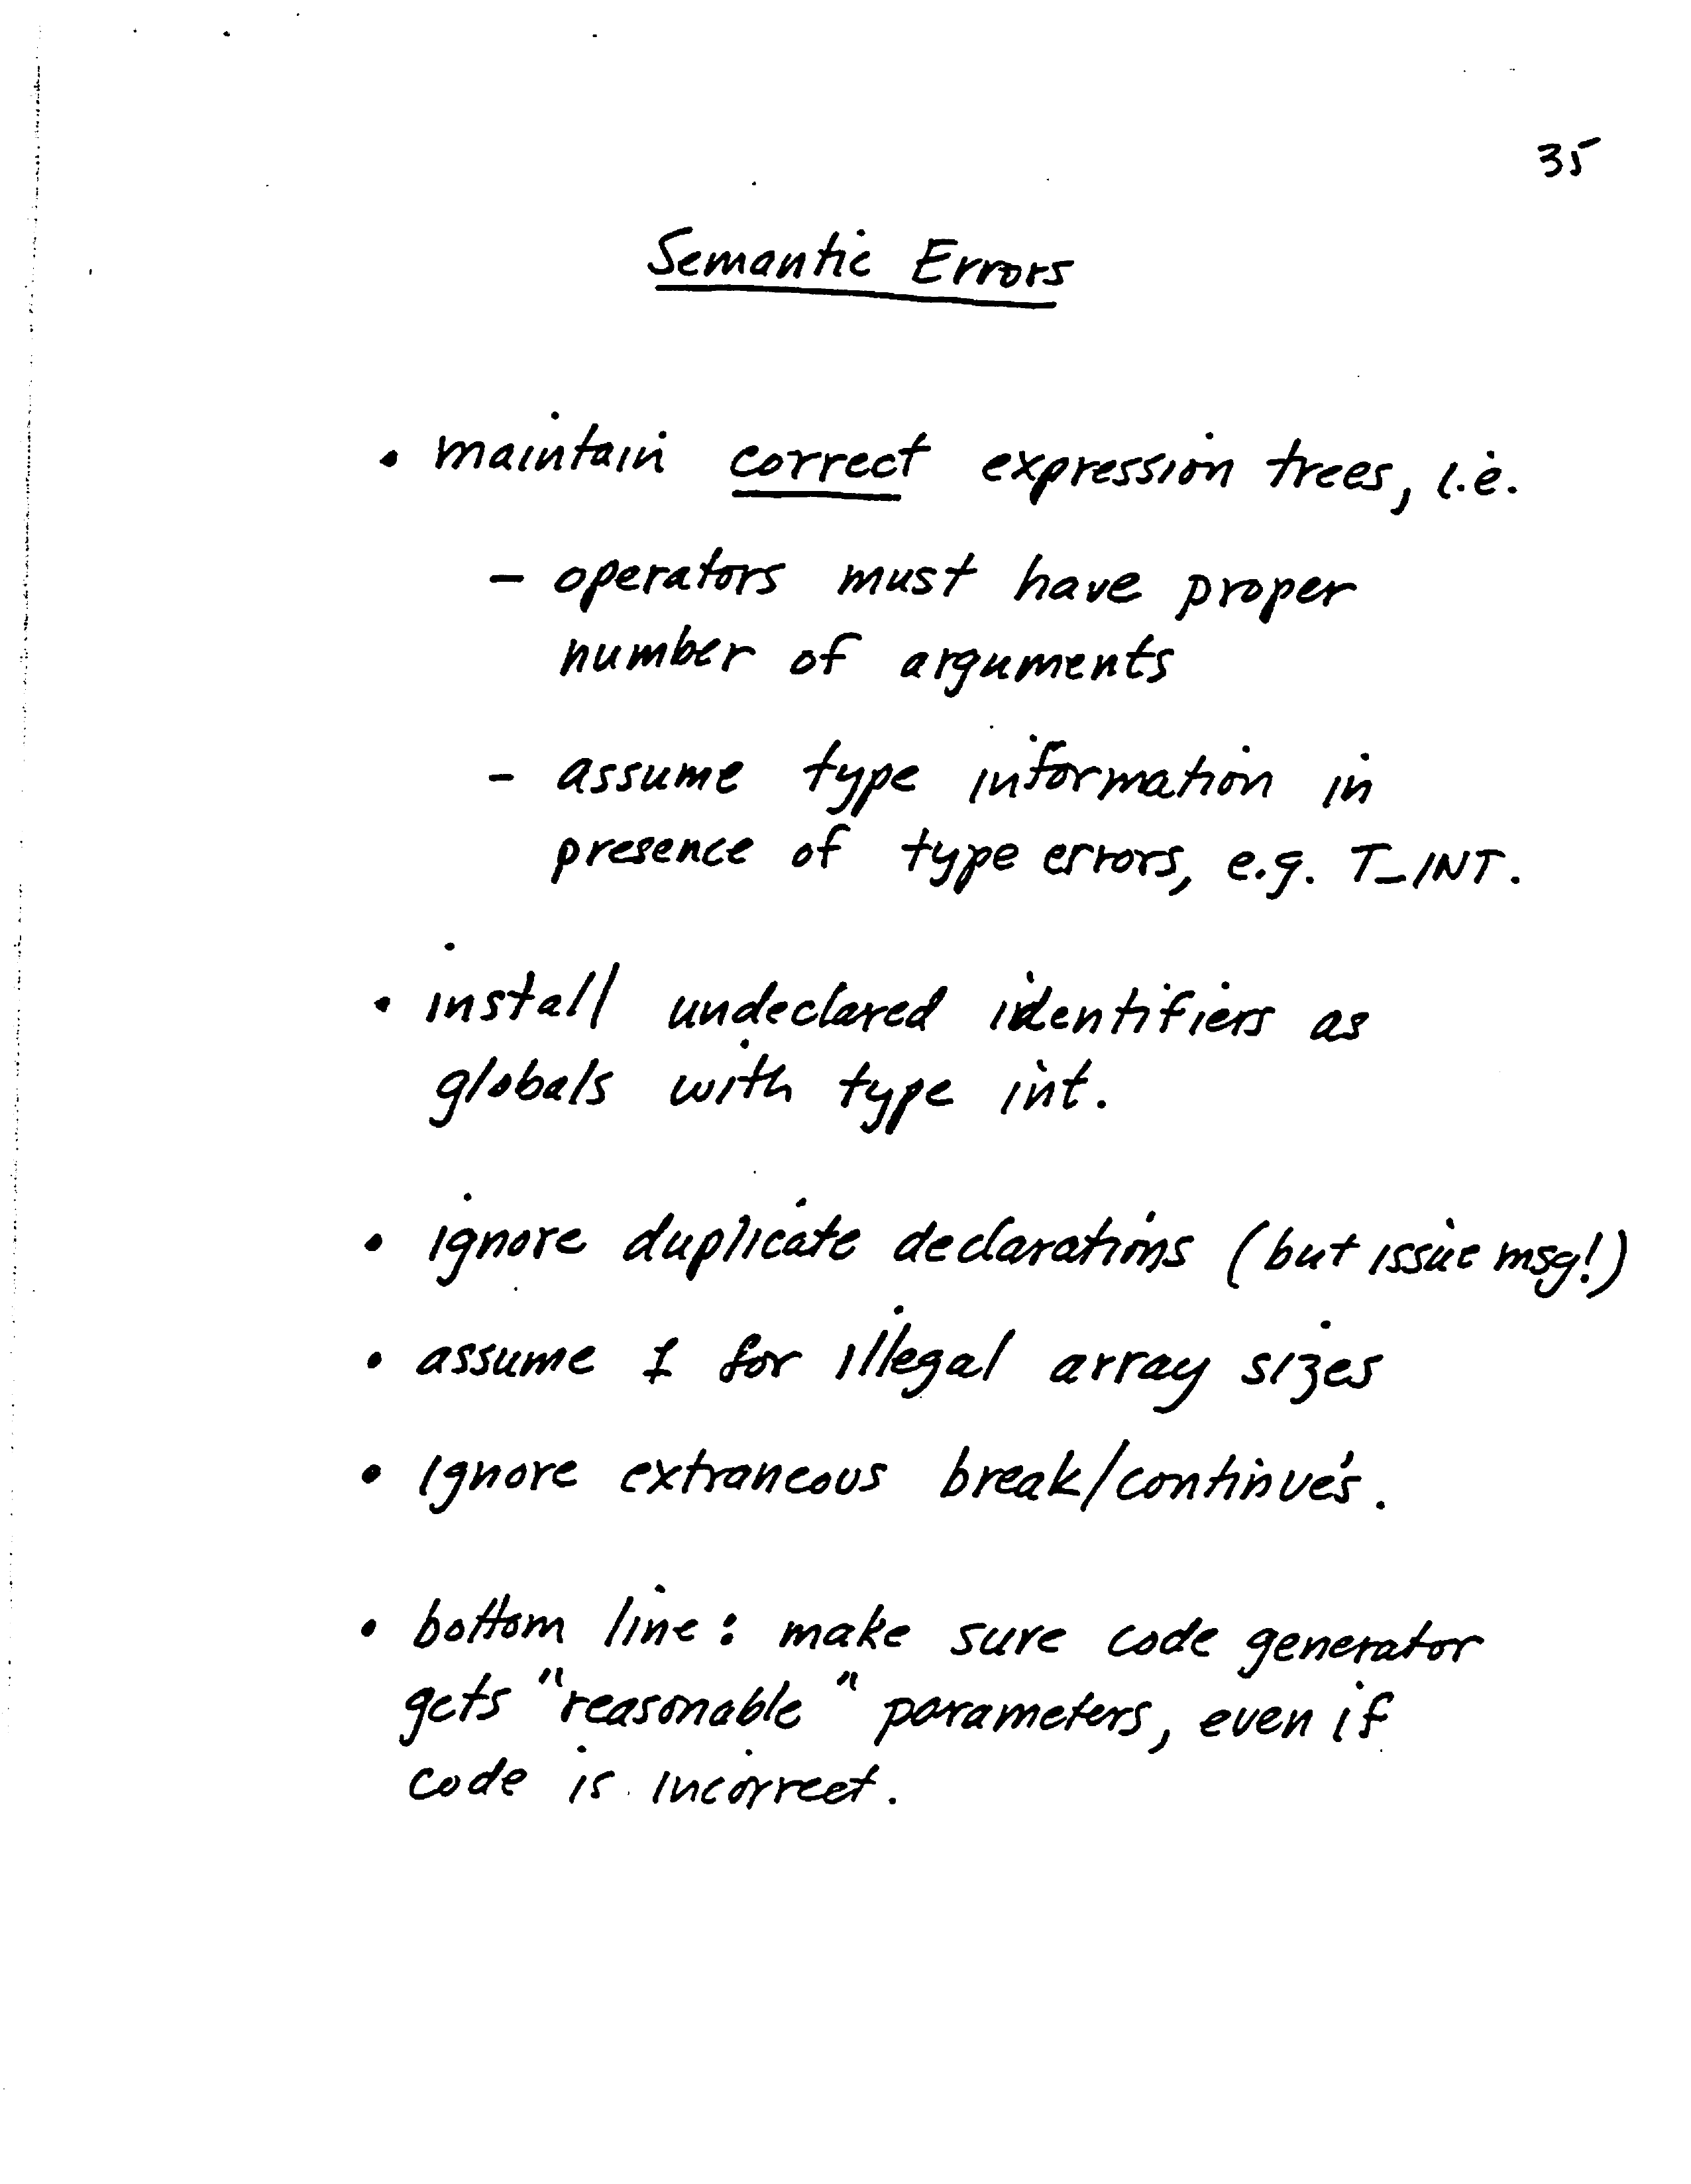 35
Semantic Errors
• maintain correct expression trees, i.e.
– operators must have proper
number of arguments
– assume type information in
presence of type errors, e.g. T_INT.
• install undeclared identifiers as
globals with type int.
• ignore duplicate declarations (but issue msg!)
• assume 1 for illegal array sizes
• ignore extraneous break/continue's.
• bottom line: make sure code generator
gets "reasonable" parameters, even if
code is incorrect.